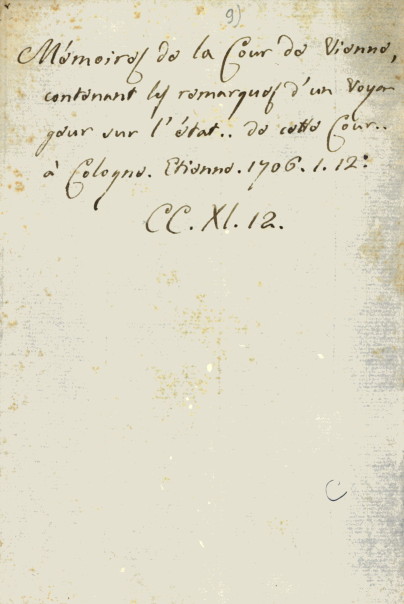 9)
Mémoires de la Cour de Vienne,
contenant les remarques d'un Voya-
geur sur l'état.. de cette Cour..
à Cologne. Etienne. 1706. 1. 12:
CC. XI. 12.
C